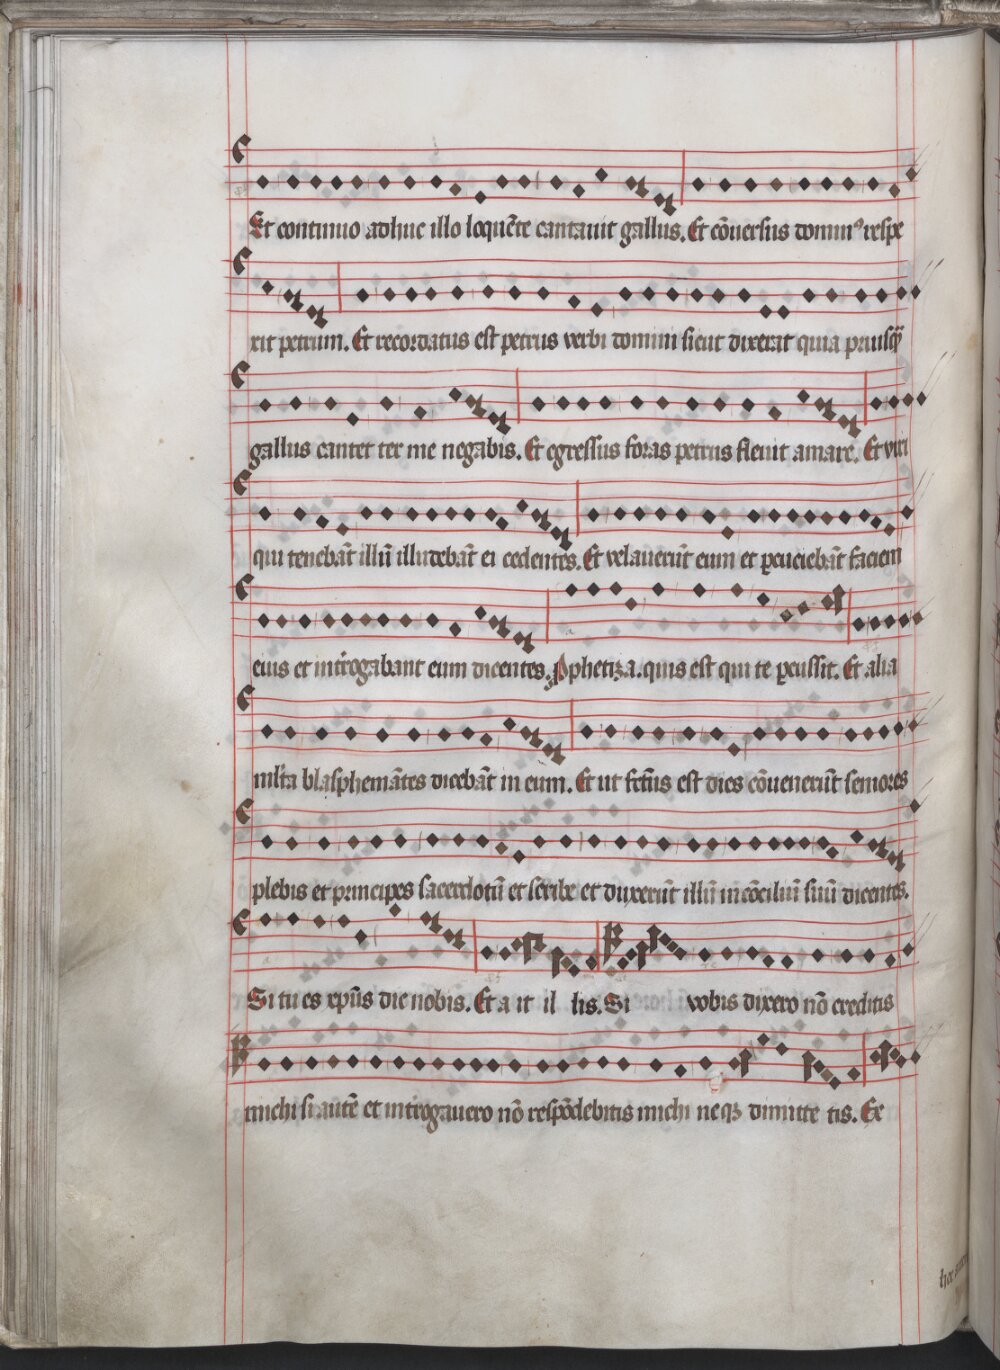 Et continuo adhuc illo loquēte cantauit gallus. Et cōuersus domin⁹ respe
xit petrum. Et recordatus est petrus verbi domini sicut dixerat quia priusq̄
gallus cantet ter me negabis. Et egressus foras petrus fleuit amare. Et viri
qui tenebāt illū illudebāt ei cedentes. Et velauerūt eum et ꝑcuciebāt faciem
eius et int̄rogabant eum dicentes. Ꝓphetiza. quis est qui te ꝑcussit. Et alia
ml̄ta blasphemātes dicebāt in eum. Et ut fc̄tus est dies cōuenerūt seniores
plebis et principes sacerdotū et scribe et duxerūt illū in cōciliū suū dicentes.
Si tu es xp̄us dic nobis. Et a it il lis. Si vobis dixero nō creditis
michi si autē et int̄rogauero nō respōdebitis michi neqꝫ dimitte tis. Ex